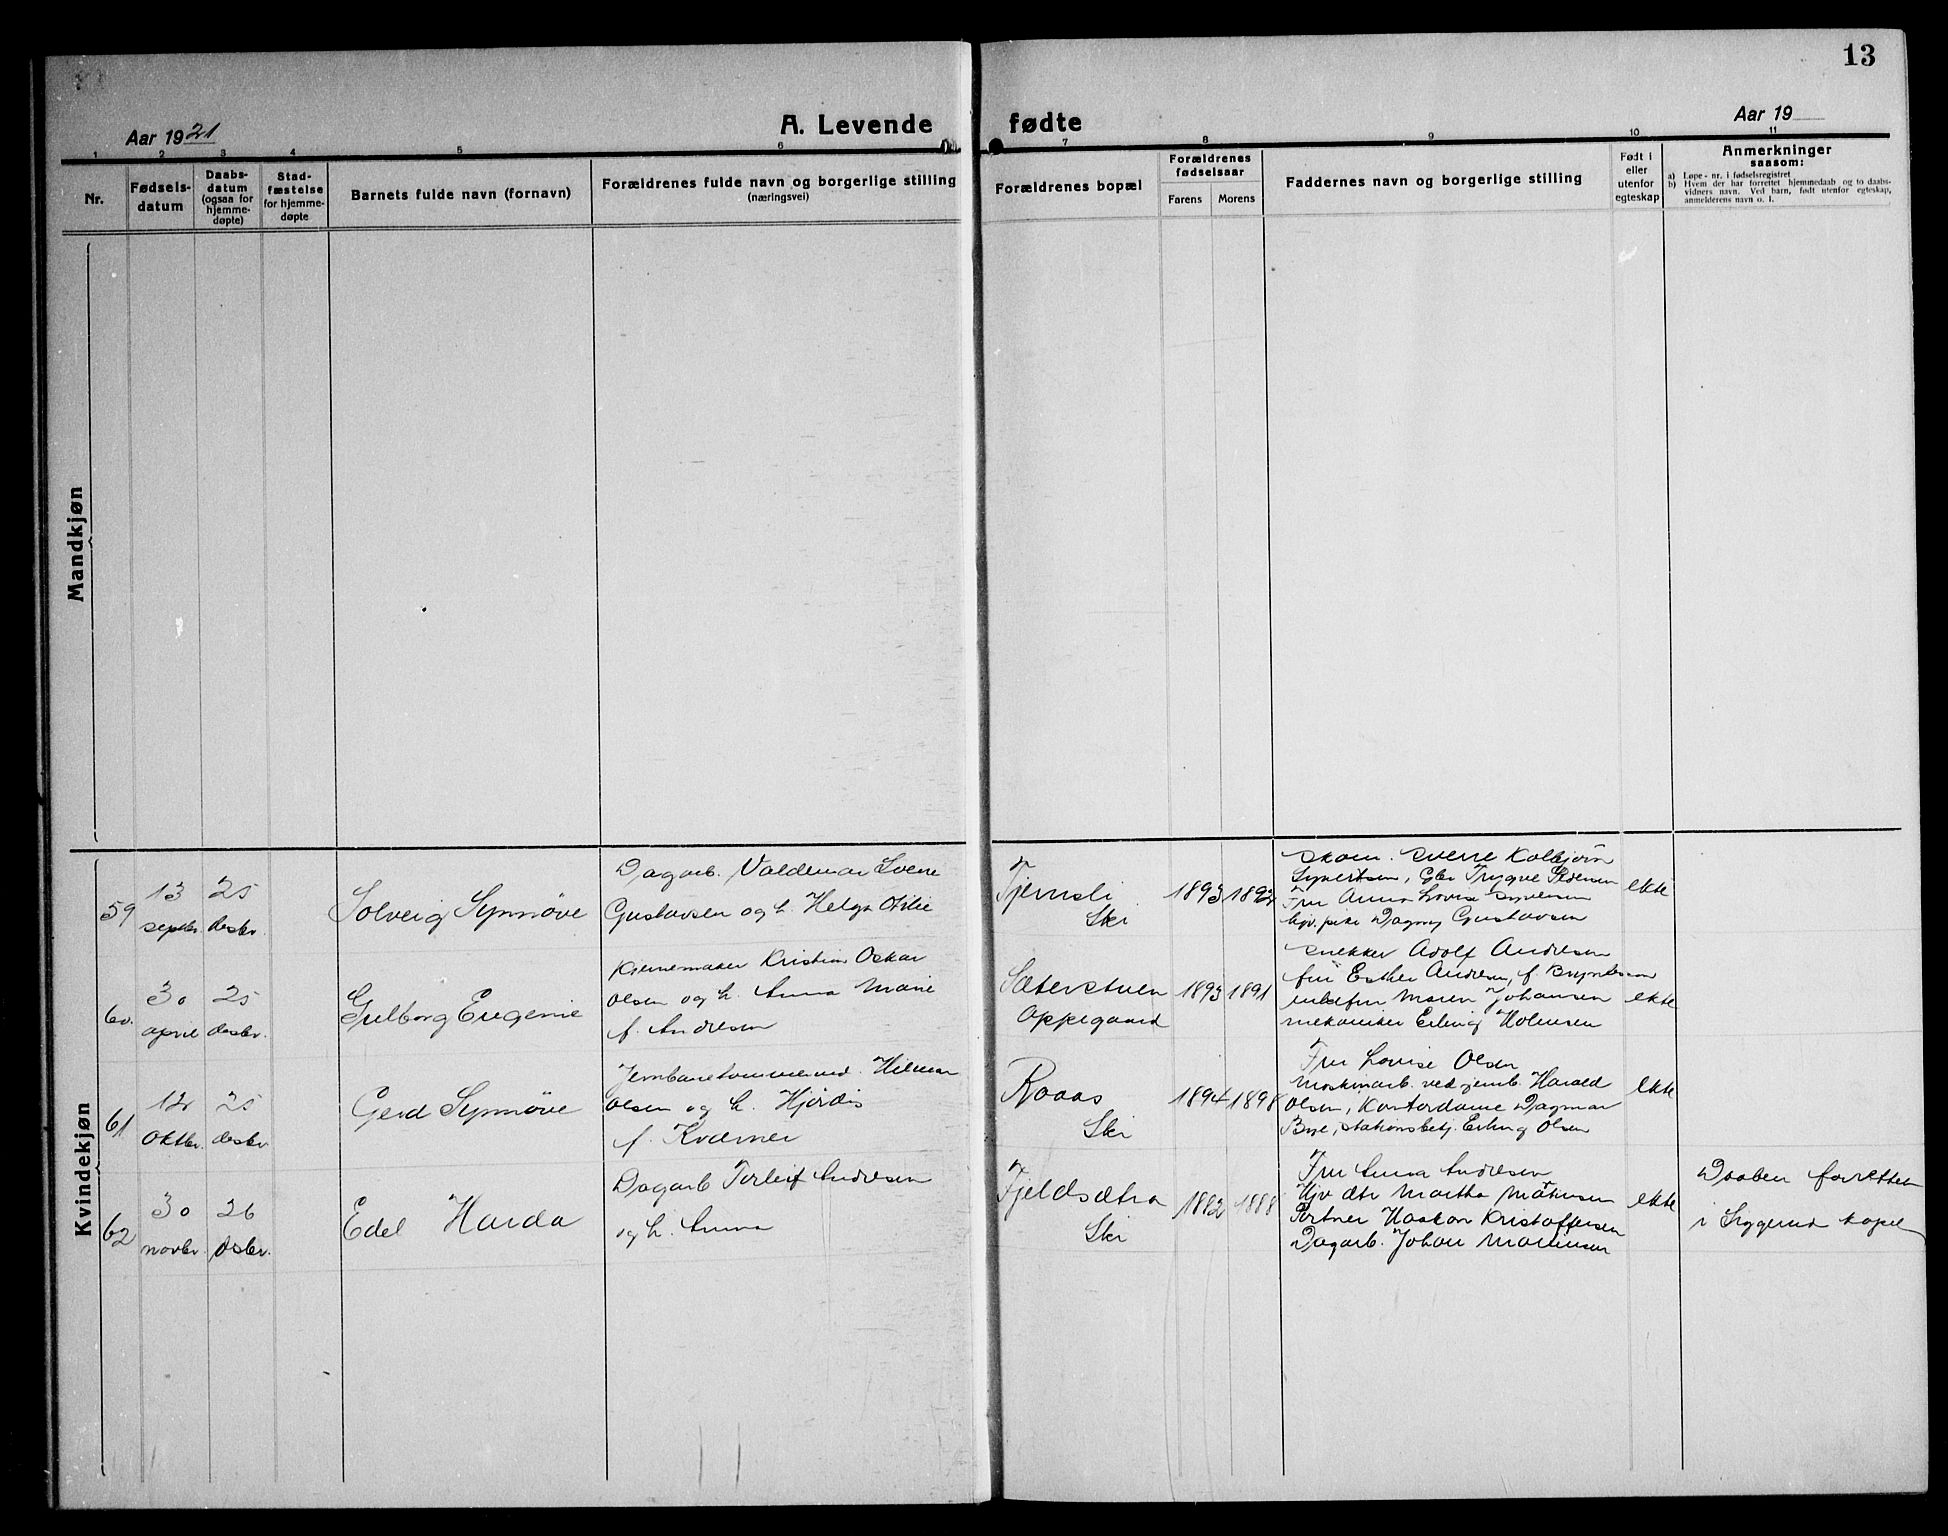 13
Aar 1921
A. Levende fødte
Aar 19
1 2 3 4 5 6 7 8 9 10 11
Nr.
Fødsels-
datum
Daabs-
datum
(ogsaa for
hjemme-
døpte)
Stad-
fæstelse
for hjemme-
døpte
Barnets fulde navn (fornavn)
Forældrenes fulde navn og borgerlige stilling
(næringsvei)
Forældrenes bopæl
Forældrenes
fødselsaar
Farens Morens
Faddernes navn og borgerlige stilling
Født i
eller
utenfor
egteskap
Anmerkninger
saasom:
a) Løpe-nr. i fødselsregistret
b) Hvem der har forrettet hjemmedaab og to daabs-
vidners navn. Ved barn, født utenfor egteskap,
anmelderens navn o. l.
Mandkjøn
Kvindekjøn
59
13
septbr.
25
desbr.
Solveig Synnøve
Dagarb. Valdemar Sverre
Gustavsen og h. Helga Otilie
Tjernsli
Ski
1893
Skom. Sverre Kolbjørn
Sypertsen, Gbr Trygve Pedersen
Fru Anna Lovise
tjv. pike Dagny Gustavsen
ekte
60.
30
april
25
desbr.
Gulborg Eugenie
Kristian Oskar
Olsen og h. Anna Marie
f. Andresen
Sæterstuen
Oppegaard
1893 1891
Snekker Adolf Andresen
fru Esther Andresen, f. Bryntesen
enkefru Maren Johansen
mekaniker Erling Holmsen
ekte
61
12
Oktbr.
25
desbr
Gerd Synnøve
Jernbanetømmermd. Hilmar
Olsen og h. Hjørdis
f. Kværner
Roaas
Ski
1894 1898
Fru Lovise Olsen
Maskinarb. ved jernb. Harald
Olsen, Kontordame Dagmar
Bye, stationsbetj. Erling Olsen
ekte
62
30
novbr.
26
desbr.
Edel Harda
Dagarb Torleif Andresen
og h. Anna
Fjeldsætra
Ski
1882 1888
Fru Anna Andresen
Hjv dtr Martha Mathisen
Portner Haakon Kristoffersen
Dagarb. Johan Martinsen
ekte
Daaben forrettet
i kapel